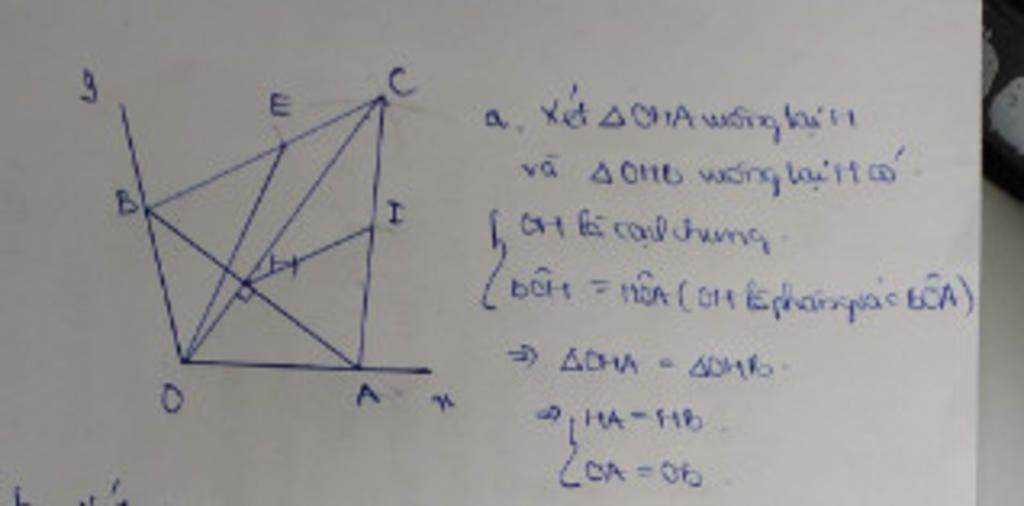 y
E
C
B
I
H
O
A
x
a, Xét △OHA vuông tại H
và △OHB vuông tại H có
OH là cạnh chung
BÔH = HÔA (OH là phân giác BÔA)
⇒ △OHA = △OHB.
⇒ HA = HB
OA = OB